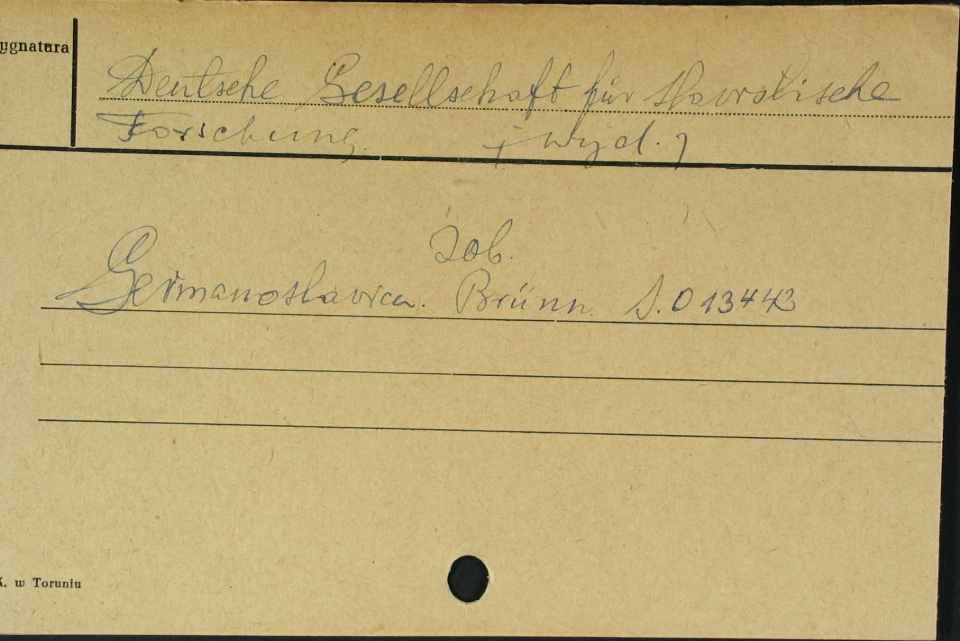 ygnatura
Deutsche Gesellschaft für slavistische
Forschung. (wyd.)
Zob.
Germanoslavica. Brünn. S.013443
K. w Toruniu